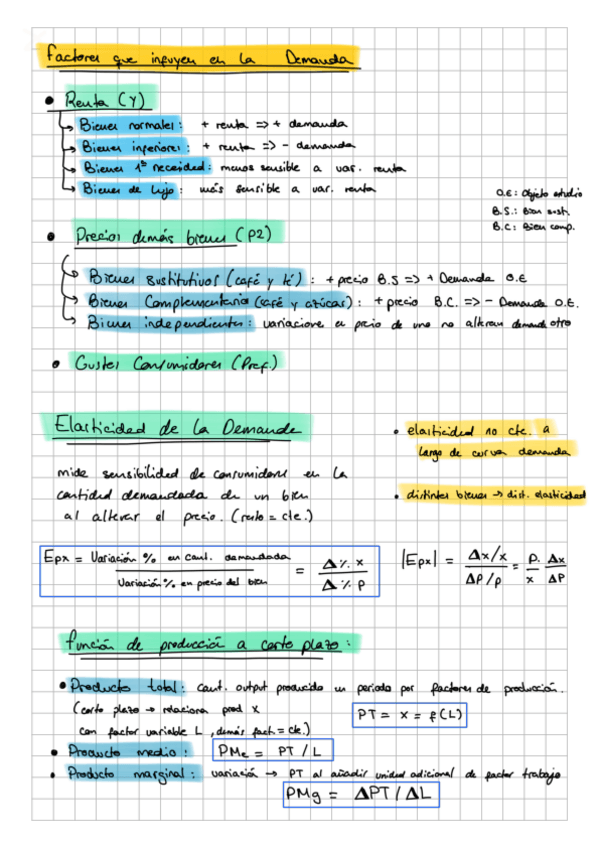 Factores que infuyen en la Demanda
• Renta (Y)
Bienes normales: + renta => + demanda
Bienes inferiores: + renta => - demanda
Bienes 1ª necesidad: menos sensible a var. renta
Bienes de lujo: más sensible a var. renta
O.E: Objeto estudio
B.S.: Bien sust.
B.C.: Bien comp.
• Precios demás bienes (P2)
Bienes Sustitutivos (café y té): + precio B.S => + Demanda O.E
Bienes Complementarios (café y azúcar): + precio B.C. => - Demanda O.E.
Bienes independientes: variaciones en precio de uno no alteran demanda otro
• Gustos Consumidores (Pref.)
Elasticidad de la Demanda
• elasticidad no cte. a
largo de curva demanda
mide sensibilidad de consumidores en la
cantidad demandada de un bien
al alterar el precio. (resto = cte.)
• distintos bienes → dist. elasticidad
Epx = Variación % en cant. demandada / Variación % en precio del bien = Δ%x / Δ%p
|Epx| = Δx/x / Δp/p = p/x · Δx/Δp
función de producción a corto plazo:
• Producto total: cant. output producida en periodo por factores de producción.
(corto plazo → relaciona prod X
con factor variable L, demás fact. = cte.)
PT = X = f(L)
• Producto medio: PMe = PT / L
• Producto marginal: variación → PT al añadir unidad adicional de factor trabajo
PMg = ΔPT / ΔL